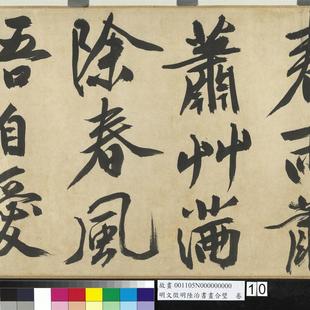 春雨蕭
蕭艸滿
除春風
吾自愛
故畫 001105N000000000
明文徵明陸治書畫合璧 卷
10